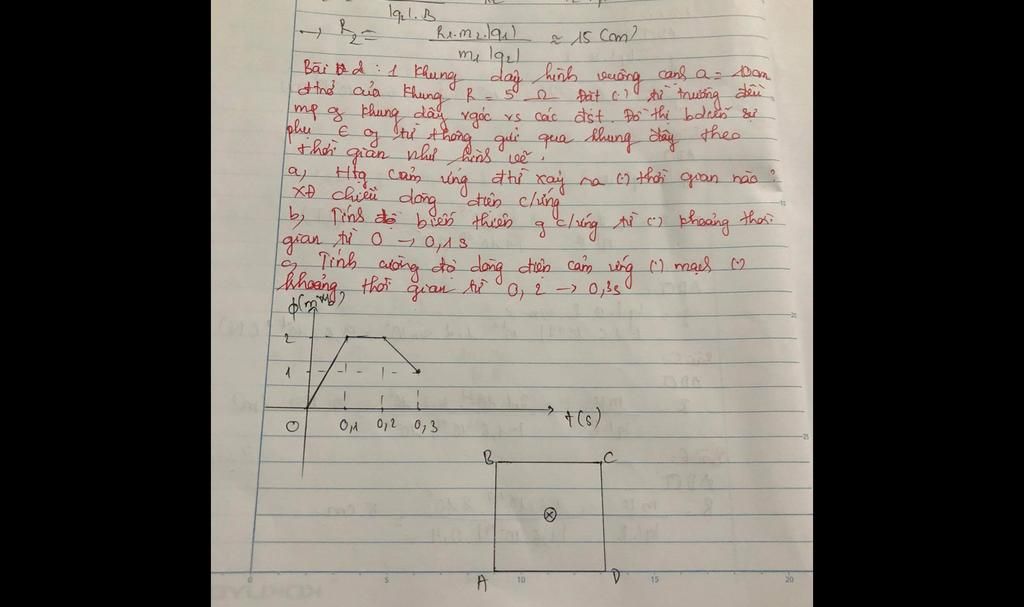 |q₂|.B
→ R₂ = R₁.m₂.|q₁| / m₁|q₂| ≈ 15 (cm)
Bài 2 : 1 khung dây hình vuông cạnh a = 10cm
đtrở của khung R = 5 Ω Đặt (.) từ trường đều
mp g khung dây vgóc vs các đst. Đồ thị bdiễn sự
phụ € of từ thông gửi qua khung dây theo
thời gian như hình vẽ.
a, Htg cảm ứng đtừ xảy ra (.) thời gian nào ?
XĐ chiều dòng điện c/ứng
b, Tính độ biến thiên g c/ứng từ (.) khoảng thời
gian từ 0 → 0,1s
c, Tính cường độ dòng điện cảm ứng (.) mạch (.)
khoảng thời gian từ 0,2 → 0,3s
ϕ(mWb)
2
1
O
0,1 0,2 0,3
t(s)
B C
⊗
A D
0 5 10 15 20